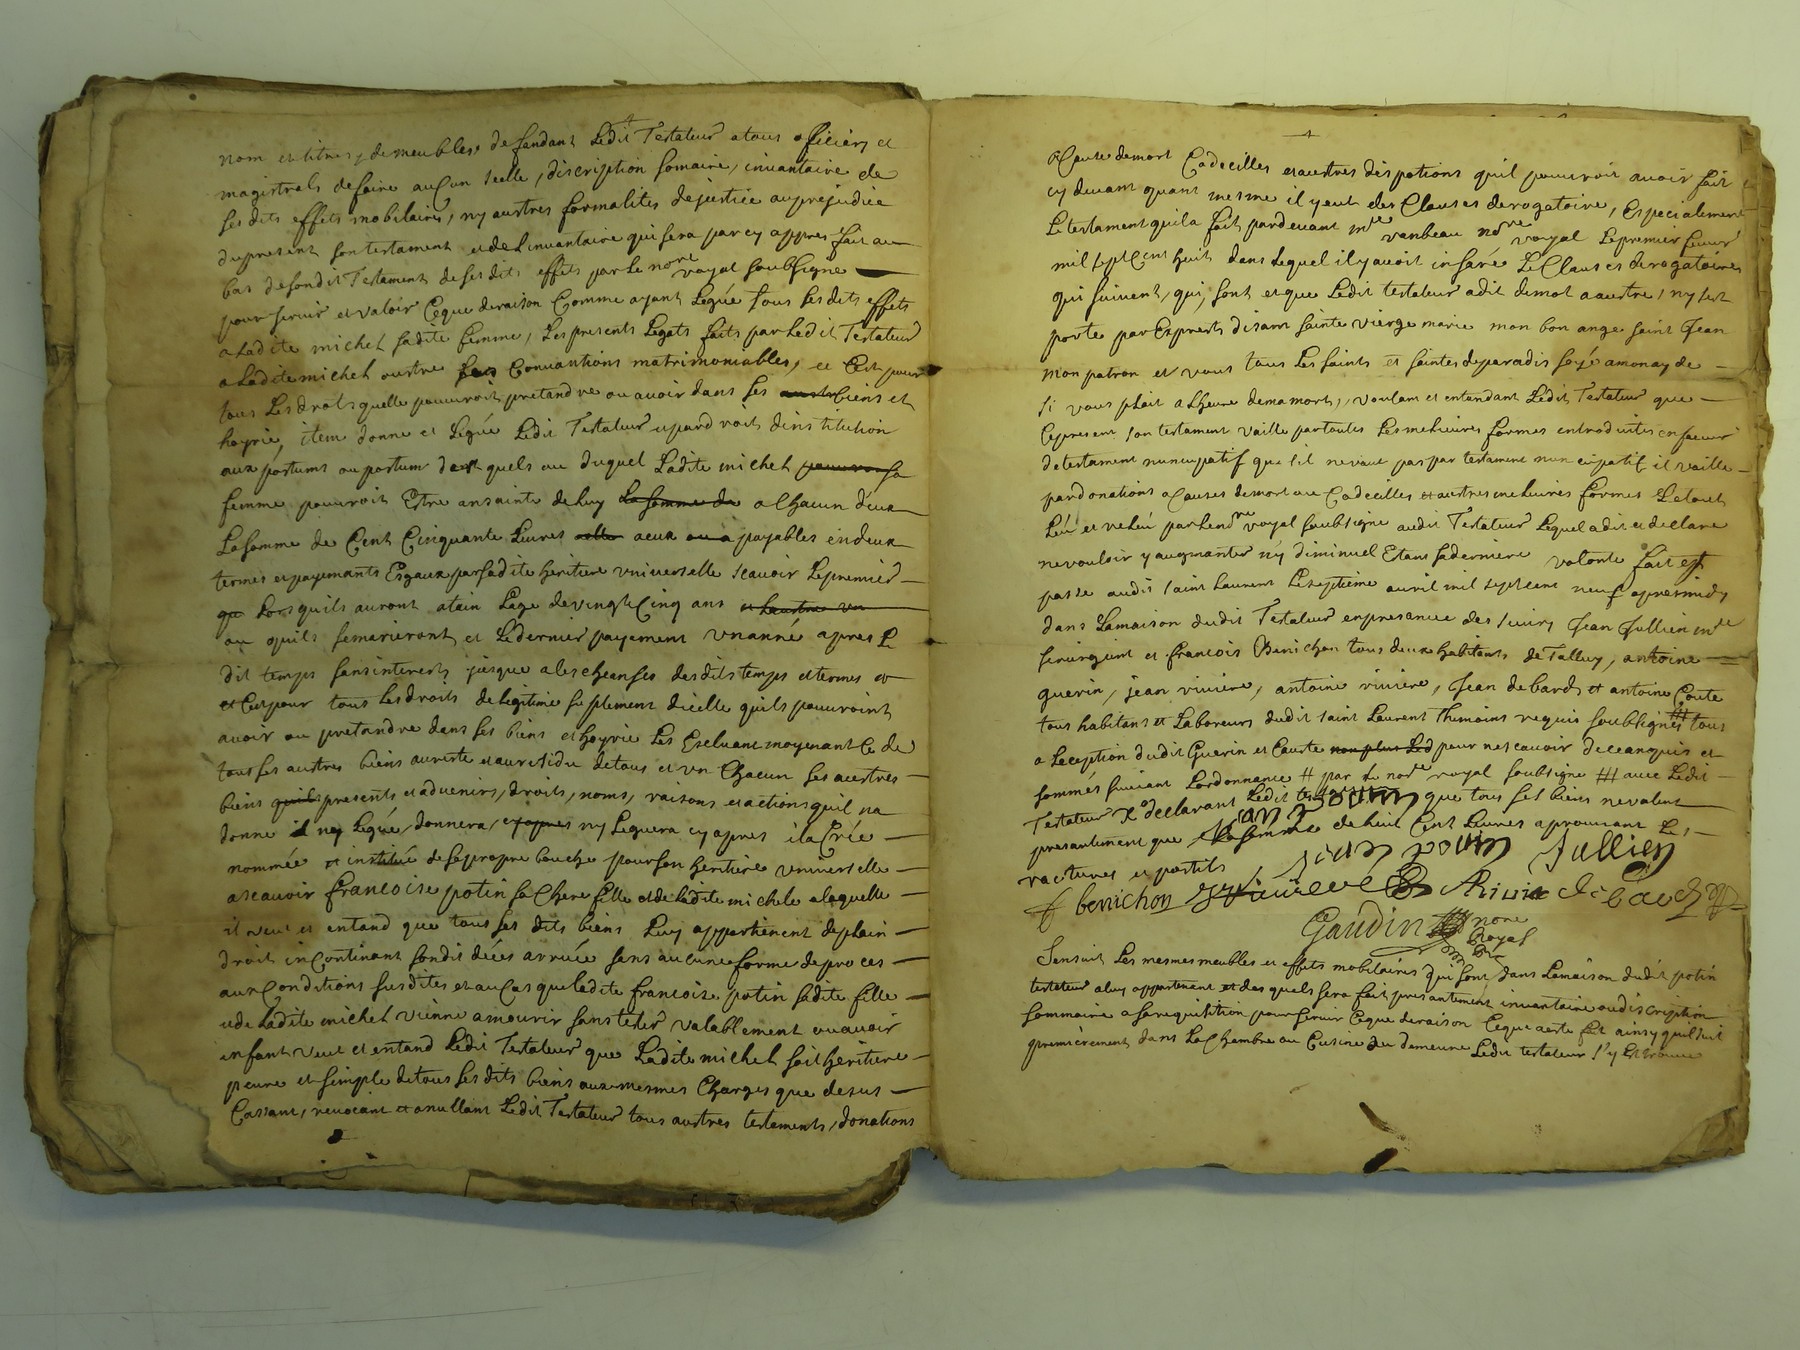 nom et titres, de meubles, defandant Ledit Testateur atous officiers et
magistrals defaire auCun scelle, discription somaire, invantaire de
sesdits effets mobilaires, ny austres formalites dejustice auprejudice
dupresent sontestament et del invantaire qui sera par cy appres fait au
bas desondit Testament de ses dits effets par Le nore royal soubsigne
pour servir et valoir Ceque deraison Comme ayant Legue tous ses dits effets
a Ladite michel sadite femme, Les presents Legats faits par Ledit Testateur
a Ladite michel oustre ses Convantions matrimoniables, et C'est pour
tous Les droits quelle pouvroit pretandre ou avoir dans ses biens et
hoyrie, item donne et Legue Ledit Testateur et par droit dinstitution
aux postums ou postum desquels ou duquel Ladite michel sa
femme pouvroit Estre ansainte de luy La somme de a Chacun deux
La somme de Cent Cinquante Livres aeux payables en deux
termes et payemants Esgaux par sadite heritiere universelle scavoir Lepremier
Lors quils auront atain Lage de vingt Cinq ans
ou quils semarieront et Ledernier payement unanné apres Le
dit temps sansinterests jusque a les cheanses des dits temps et termes et
et C'est pour tous Les droits de Legitime suplement dicelle quils pouvroint
avoir ou pretandre dans ses biens et hoyrie Les Excluant moyenant Ce de
tous ses austres biens au reste et au residu de tous et un Chacun ses austres
biens presents et advenirs, droits, noms, raisons et actions quil na
donné ny Legué, donnera, ny Leguera cy apres il a Crée
nommée et institué de sa propre bouche pour son heritiere universelle
a scavoir francoise potin sa Chere fille et de ladite michel a laquelle
il veut et entand que tous ses dits biens Luy appartienent de plain
droit inContinant sondit déces arrivée sans aucune forme de proces
aux Conditions susdites et au Cas que ladite francoise potin sadite fille
et de Ladite michel vienne amourir sans tester valablement ou avoir
enfant veut et entand Ledit Testateur que Ladite michel soit heritiere
peure et simple de tous ses dits biens aux mesmes Charges que desus
Cassant, revocant et anullant Ledit Testateur tous austres testaments, donations
a Cause demort Codecilles et austres dispotions quil pouvroit avoir fait
cy devant quant mesme il yeut des Clauses derogatoire, Especialement
Le testament quila fait pardevant me vanbeau nore royal Lepremier fevrier
mil sept Cent huit dans Lequel il y avoit inséré Le Clauses derogatoires
qui suivent, qui, sont et que Ledit testateur adit demot aaustre, ny sest
porte par Exprest disant sainte vierge marie mon bon ange saint Jean
mon patron et vous tous Les saints et saintes deparadis soyé amonayde
si vous plait a Lheure demamort, voulant et entandant Ledit Testateur que
Lepresent son testament vaille partoutes Les melieures formes introduites en faveur
de testament nuncupatif que sil nevaut pas par testament nuncupatif il vaille
par donations a Causes demort ou Codecilles et austres melieures formes Letout
Leü et releü par Lendt nore royal soubsigne audit Testateur Lequel a dit et declare
nevouloir y augmanter ny diminuer Estant sa derniere volonte fait et
passe audit saint Laurent Leseptieme avril mil septcent neuf apresmidy
dans Lamaison dudit Testateur enpresance des sieurs Jean Jullien me
sirurgient et francois Benichon tous deux habitants de Talluy, antoine
guerin, jean riviere, antoine riviere, Jean debard, et antoine Coute
tous habitans et Laboreurs dudit saint Laurent Themoins requis soubsignes # tous
a Leception dudit Guerin et Couste pour ne scavoir de ceanquis et
sommés suivant Lordonnance # par Le nore royal soubsigne ## avec Ledit
Testateur Xo declarant Ledit testateur que tous ses biens nevalent
presantement que La somme de huit Cent Livres aprouvant Les
ractures et postils
jean potin Jullien
benichon Riviere Riviere debard
Gaudin nore
Royal
Sensuit Les mesmes meubles et effets mobilaires qui sont dans Lamaison dudit potin
testateur aluy appartenent et des quels sera fait presantement invantaire oudiscription
sommaire a sa requisition pour servir Ceque deraison Ceque aeste fet ainsy quil suit
premierement dans La Chambre ou Cuisine du demeure Ledit testateur s'y Est trouvé